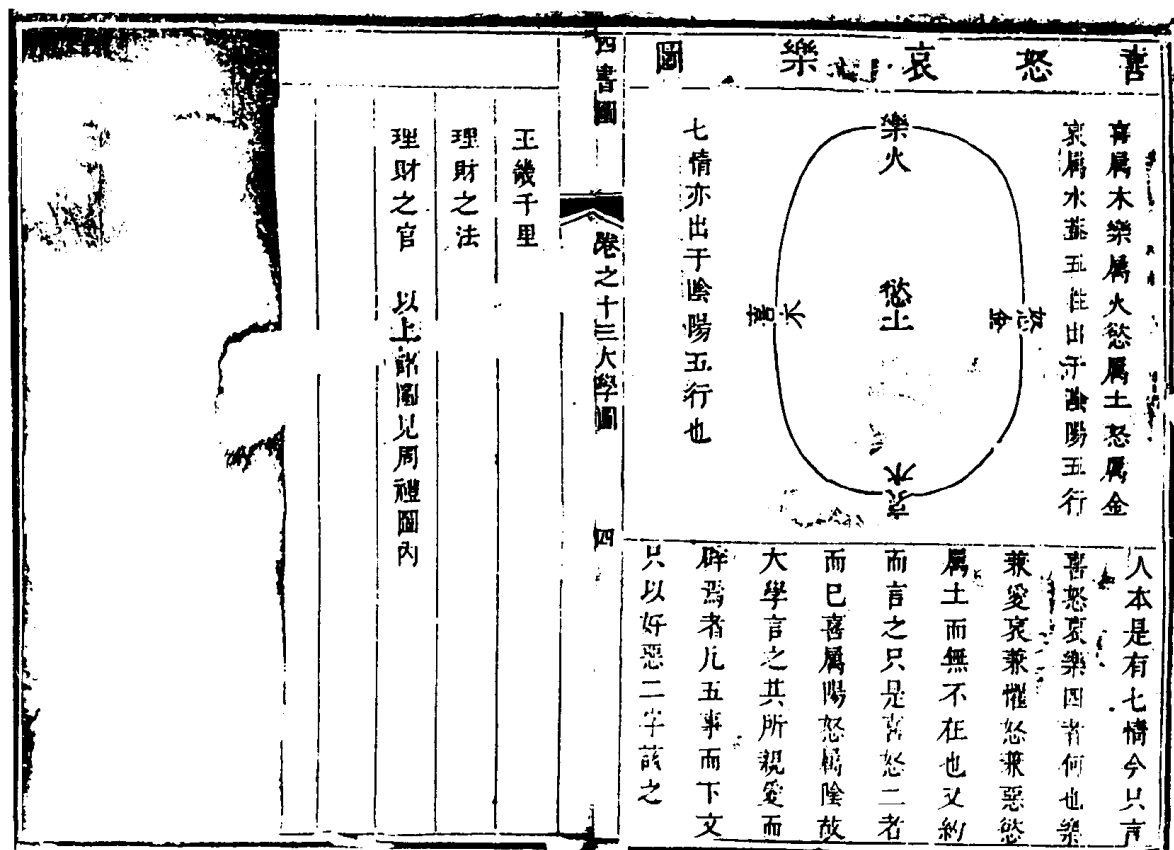 喜怒哀樂圖
喜屬木樂屬火慾屬土怒屬金
哀屬水蓋五性出于陰陽五行
樂火
慾土
怒金
喜木
哀水
七情亦出于陰陽五行也
人本是有七情今只言
喜怒哀樂四者何也樂
兼愛哀兼懼怒兼惡慾
属土而無不在也又約
而言之只是喜怒二者
而已喜属陽怒屬陰故
大學言之其所親愛而
辟焉者凡五事而下文
只以好惡二字該之
四書圖
卷之十三大學圖
四
王畿千里
理財之法
理財之官 以上諸圖見周禮圖內